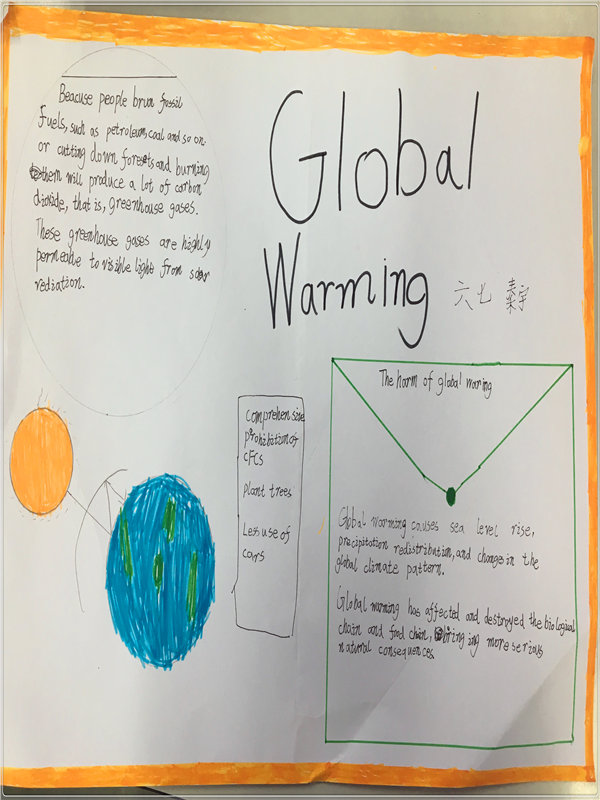 Beacuse people brun fossil
fuels, such as petroleum, coal and so on.
or cutting down forests and burning
them will produce a lot of carbon
dioxide, that is, greenhouse gases.
These greenhouse gases are highly
permeable to visible light from solar
rediation.
Global
Warming
六七 秦宇
Comprehensive
prohibition of
CFCs
plant trees
Less use of
cars
The harm of global waring
Global warming causes sea level rise,
precipitation redistribution, and change in the
global climate pattern.
Global warning has affected and destroyed the biological
chain and food chain, bringing more serious
natural consequences.